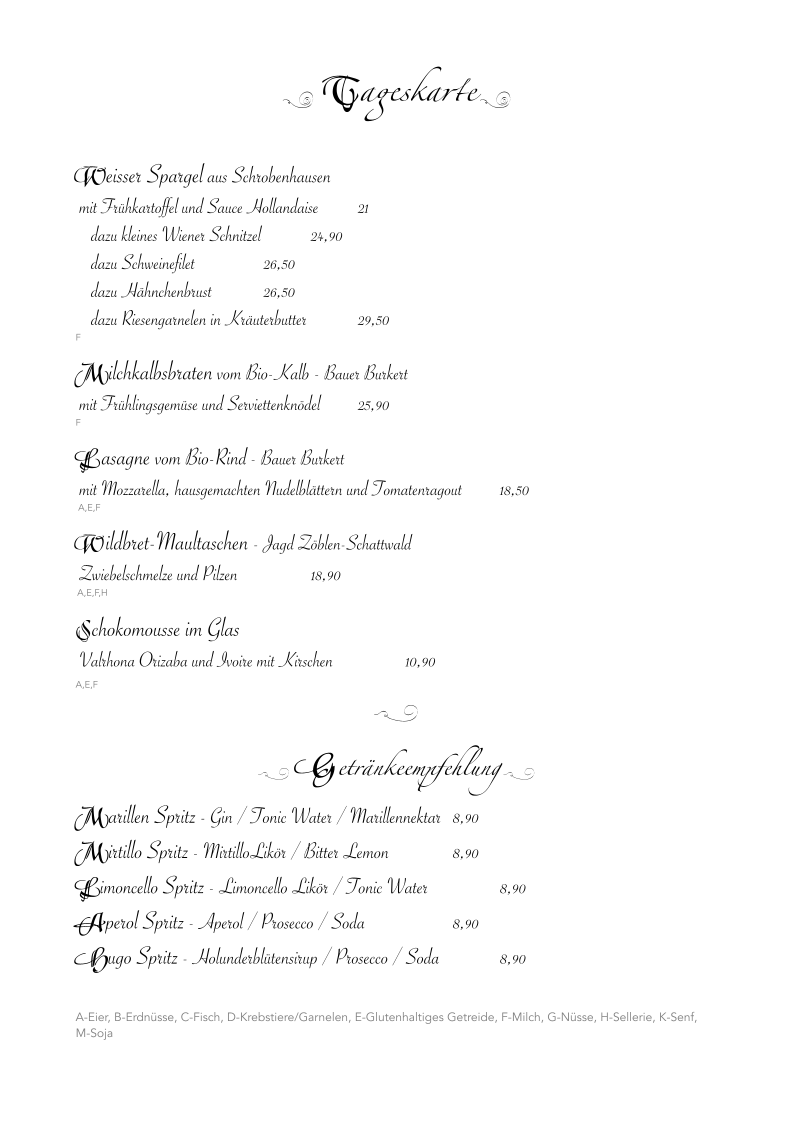 Tageskarte
Weisser Spargel aus Schrobenhausen
mit Frühkartoffel und Sauce Hollandaise 21
dazu kleines Wiener Schnitzel 24,90
dazu Schweinefilet 26,50
dazu Hähnchenbrust 26,50
dazu Riesengarnelen in Kräuterbutter 29,50
F
Milchkalbsbraten vom Bio-Kalb - Bauer Burkert
mit Frühlingsgemüse und Serviettenknödel 25,90
F
Lasagne vom Bio-Rind - Bauer Burkert
mit Mozzarella, hausgemachten Nudelblättern und Tomatenragout 18,50
A,E,F
Wildbret-Maultaschen - Jagd Zöblen-Schattwald
Zwiebelschmelze und Pilzen 18,90
A,E,F,H
Schokomousse im Glas
Valrhona Orizaba und Ivoire mit Kirschen 10,90
A,E,F
Getränkeempfehlung
Marillen Spritz - Gin / Tonic Water / Marillennektar 8,90
Mirtillo Spritz - MirtilloLikör / Bitter Lemon 8,90
Limoncello Spritz - Limoncello Likör / Tonic Water 8,90
Aperol Spritz - Aperol / Prosecco / Soda 8,90
Hugo Spritz - Holunderblütensirup / Prosecco / Soda 8,90
A-Eier, B-Erdnüsse, C-Fisch, D-Krebstiere/Garnelen, E-Glutenhaltiges Getreide, F-Milch, G-Nüsse, H-Sellerie, K-Senf,
M-Soja